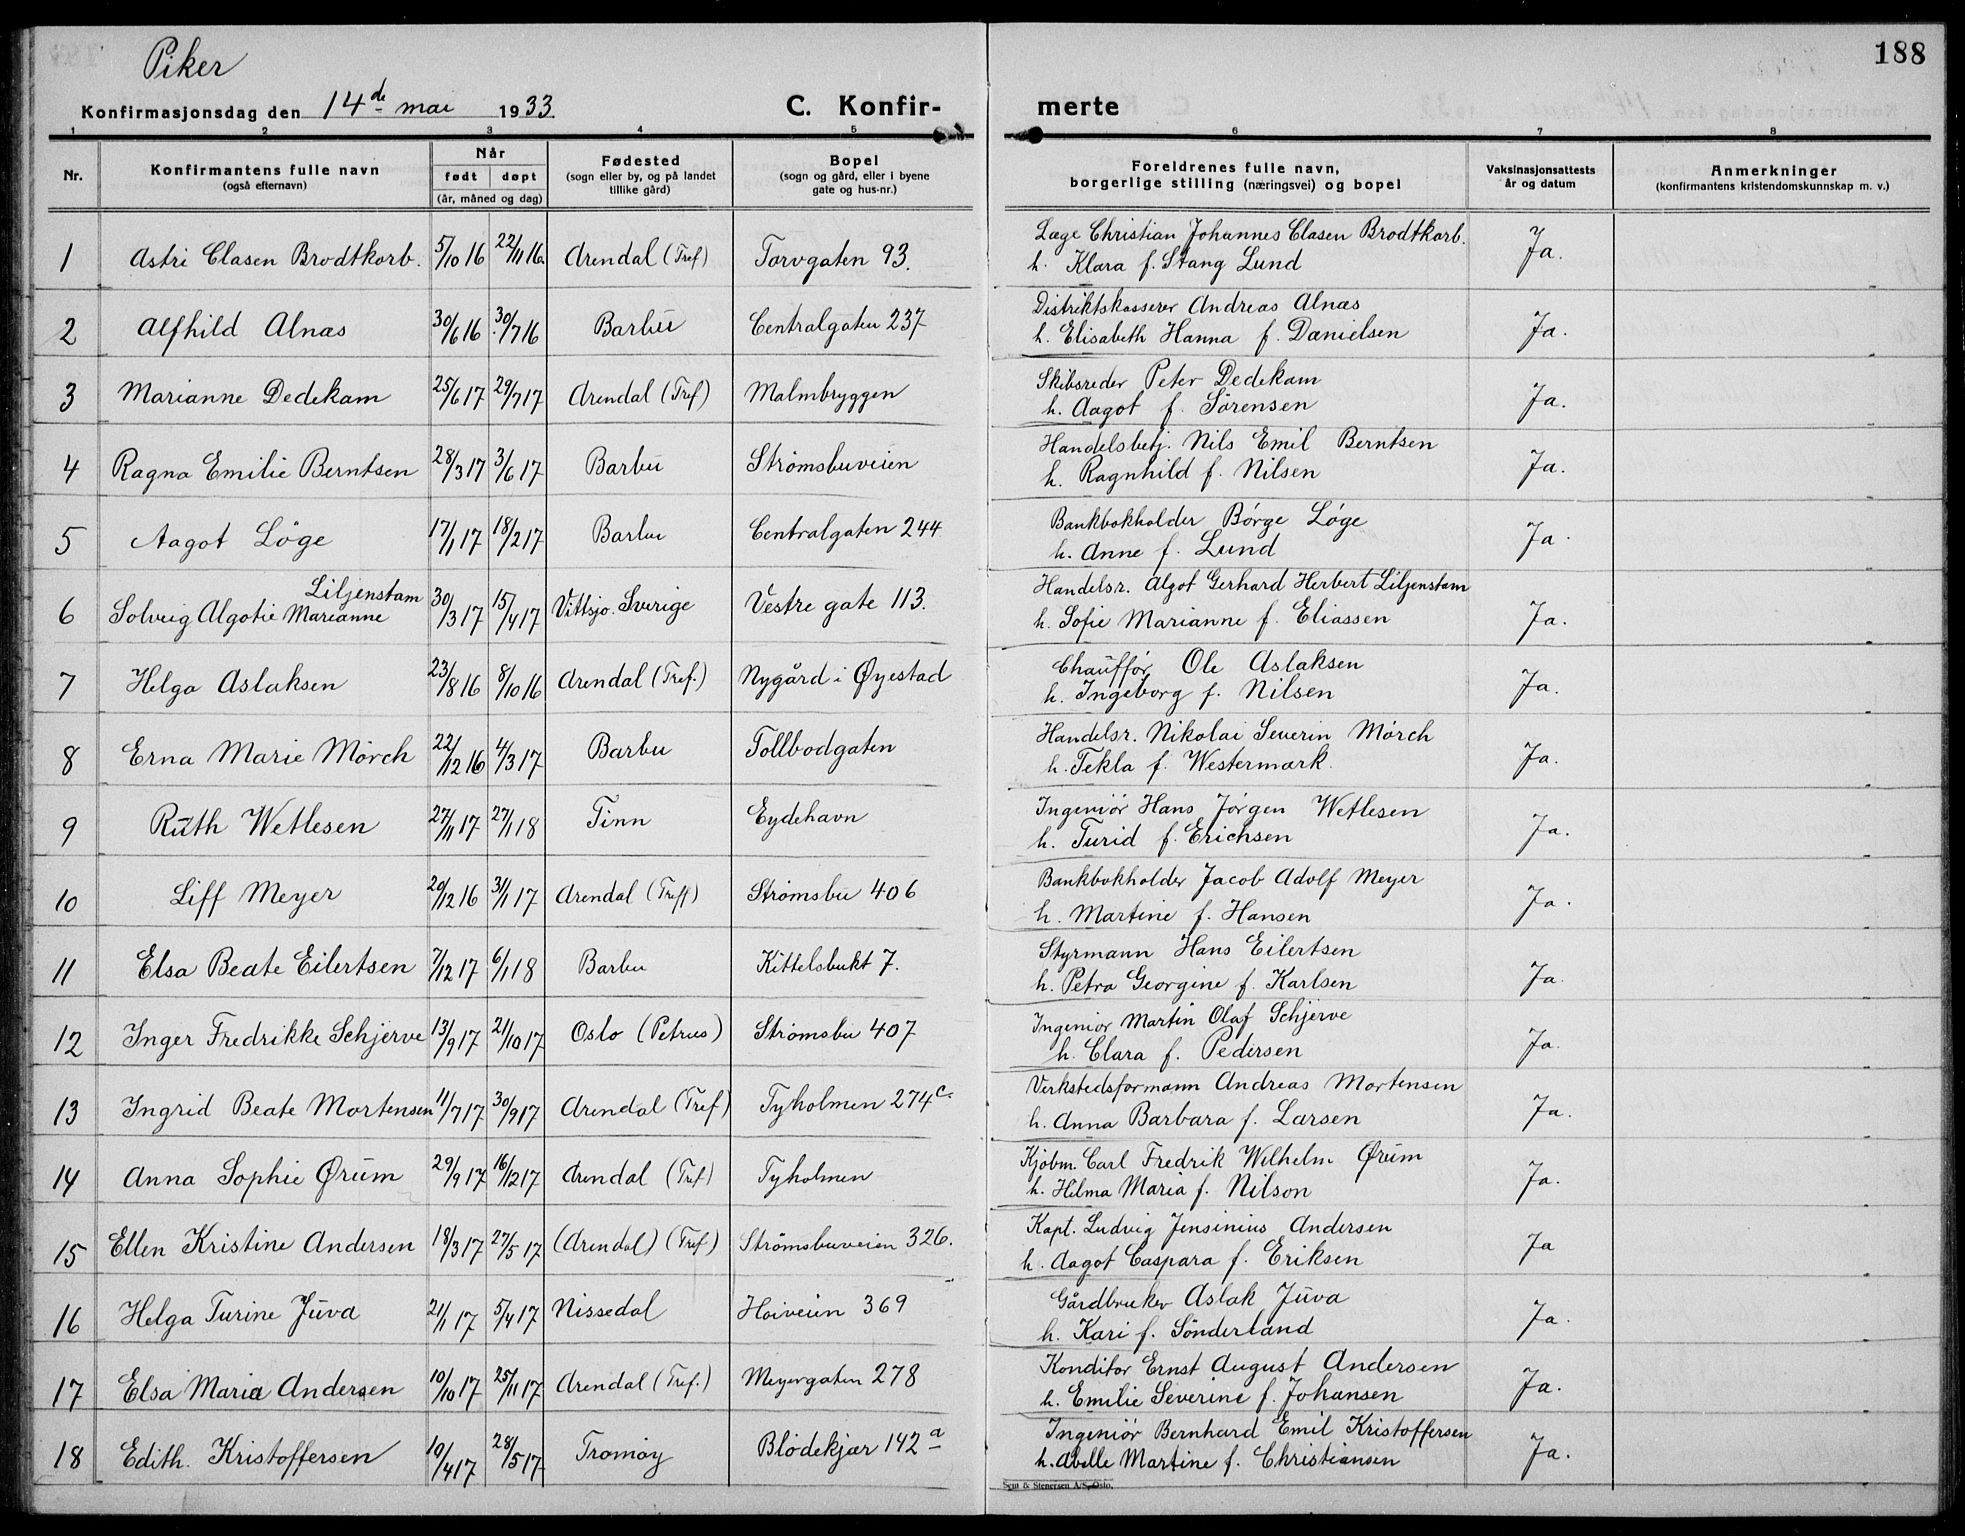 188
Piker
Konfirmasjonsdag den 14de mai 1933. C. Konfir- merte
1 2 3 4 5 6 7 8
Nr. Konfirmantens fulle navn (også efternavn) Når født døpt (år, måned og dag) Fødested (sogn eller by, og på landet tillike gård) Bopel (sogn og gård, eller i byene gate og hus-nr.) Foreldrenes fulle navn, borgerlige stilling (næringsvei) og bopel Vaksinasjonsattests år og datum Anmerkninger (konfirmantens kristendomskunnskap m. v.)
1 Astri Clasen Brodtkorb. 5/10 16 22/11 16. Arendal (Tref) Torvgaten 93. Læge Christian Johannes Clasen Brodtkorb. Ja.
h. Klara f. Stang Lund
2 Alfhild Alnæs 30/6 16 30/7 16 Barbu Centralgaten 237 Distriktskasserer Andreas Alnæs Ja.
h. Elisabeth Hanna f. Danielsen
3 Marianne Dedekam 25/6 17 29/7 17 Arendal (Tref) Malmbryggen Skibsreder Peter Dedekam Ja.
h. Aagot f. Sörensen
4 Ragna Emilie Berntsen 28/3 17 3/6 17 Barbu Strømsbuveien Handelsbetj. Nils Emil Berntsen Ja.
h. Ragnhild f. Nilsen
5 Aagot Löge 17/1 17 18/2 17 Barbu Centralgaten 244 Bankbokholder Börge Löge Ja.
h. Anne f. Lund
6 Solveig Algotie Marianne Liljenstam 30/3 17 15/4 17 Vittsjo. Sverige Vestre gate 113. Handelsr. Algot Gerhard Herbert Liljenstam Ja.
h. Sofie Marianne f. Eliassen
7 Helga Aslaksen 23/8 16 8/10 16 Arendal (Tref.) Nygård i Øyestad Chauffør Ole Aslaksen Ja.
h. Ingeborg f. Nilsen
8 Erna Marie Mörch 22/12 16 4/3 17 Barbu Tollbodgaten Handelsr. Nikolai Severin Mörch Ja.
h. Tekla f. Westermark.
9 Ruth Wetlesen 27/11 17 27/1 18 Tinn Eydehavn Ingeniör Hans Jörgen Wetlesen Ja.
h. Turid f. Erichsen
10 Liff Meyer 20/12 16 31/1 17 Arendal (Treff) Strömsbu 406 Bankbokholder Jacob Adolf Meyer Ja.
h. Martine f. Hansen
11 Elsa Beate Eilertsen 7/12 17 6/1 18 Barbu Kittelsbukt 7. Styrmann Hans Eilertsen Ja.
h. Petra Georgine f. Karlsen
12 Inger Fredrikke Schjerve 13/9 17 21/10 17 Oslo (Petrus) Strömsbu 407 Ingeniör Martin Olaf Schjerve Ja.
h. Clara f. Pedersen
13 Ingrid Beate Mortensen 11/7 17 30/9 17 Arendal (Tref) Tyholmen 274c. Verkstedsformann Andreas Mortensen Ja.
h. Anna Barbara f. Larsen
14 Anna Sophie Ørum 29/9 17 16/12 17 Arendal (Tref) Tyholmen Kjöbm. Carl Fredrik Wilhelm Ørum Ja.
h. Hilma Maria f. Nilson
15 Ellen Kristine Andersen 18/3 17 27/5 17 (Arendal) (Tref) Strömsbuveien 326. Kapt. Ludvig Jensinius Andersen Ja
h. Aagot Caspara f. Eriksen
16 Helga Turine Juva 21/1 17 5/4 17 Nissedal Hoiveien 369 Gårdbruker Aslak Juva Ja.
h. Kari f. Sönderland
17 Elsa Maria Andersen 10/10 17 25/11 17 Arendal (Tref.) Meyergaten 278 Konditor Ernst August Andersen Ja.
h. Emilie Severine f. Johansen
18 Edith. Kristoffersen 19/4 17 28/5 17 Tromöy Blödekjær 142a Ingeniör Bernhard Emil Kristoffersen Ja.
h. Abelle Martine f. Christiansen
Sem & Stenersen A/S, Oslo.